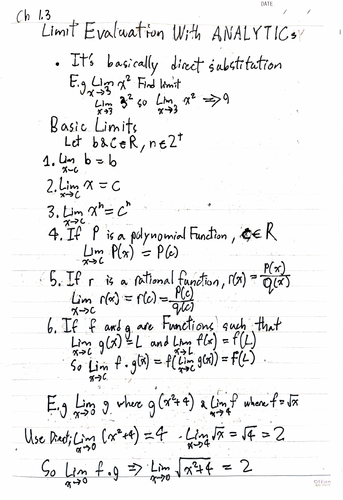 DATE / /
Ch 1.3
Limit Evaluation With ANALYTICS
• It's basically direct substitution
E.g Lim x→3 x² Find limit
Lim x→3 3² so Lim x→3 x² ⇒ 9
Basic Limits
Let b&C∈R, n∈Z⁺
1. Lim x→c b = b
2. Lim x→c x = c
3. Lim x→c xⁿ = cⁿ
4. If P is a polynomial Function, C∈R
Lim x→c P(x) = P(c)
5. If r is a rational function, r(x) = P(x)/Q(x)
Lim x→c r(x) = r(c) = P(c)/q(c)
6. If f and g are Functions such that
Lim x→c g(x) = L and Lim x→L f(x) = f(L)
So Lim x→c f∘g(x) = f(Lim x→c g(x)) = F(L)
E.g Lim x→0 g where g(x²+4) & Lim x→4 f where f=√x
Use Direct; Lim x→0 (x²+4) = 4 · Lim x→4 √x = √4 = 2
So Lim x→0 f∘g ⇒ Lim x→0 √x²+4 = 2